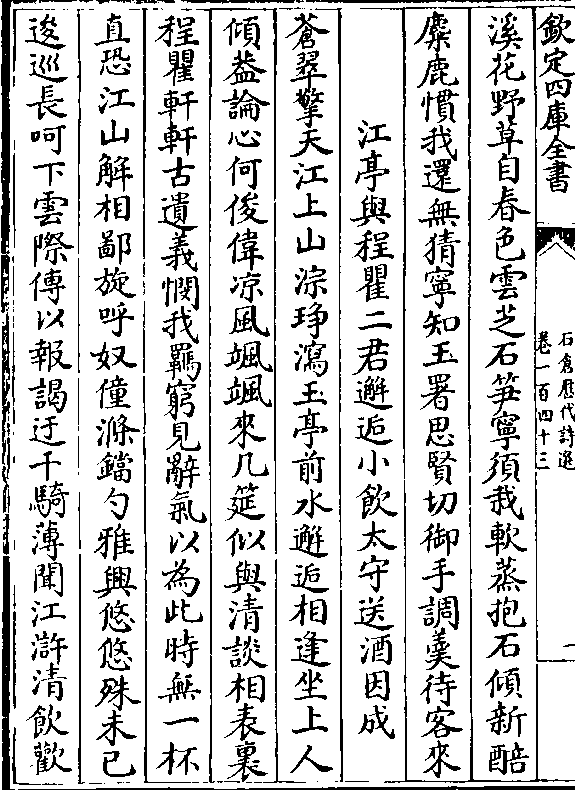 欽定四庫全書
石倉歷代詩選
卷一百四十三
一
溪花野草自春色雲芝石笋寧須栽軟蒸抱石傾新醅
麋鹿慣我還無猜寧知玉署思賢切御手調羮待客來
江亭與程瞿二君邂逅小飲太守送酒因成
蒼翠擎天江上山淙琤瀉玉亭前水邂逅相逢坐上人
傾葢論心何俊偉凉風颯颯來几筵似與清談相表裏
程瞿軒軒古遺義憫我羈窮見辭氣以為此時無一杯
直恐江山解相鄙旋呼奴僮滌鐺勺雅興悠悠殊未已
逡巡長呵下雲際傳以報謁迂千騎薄聞江滸清飲歡